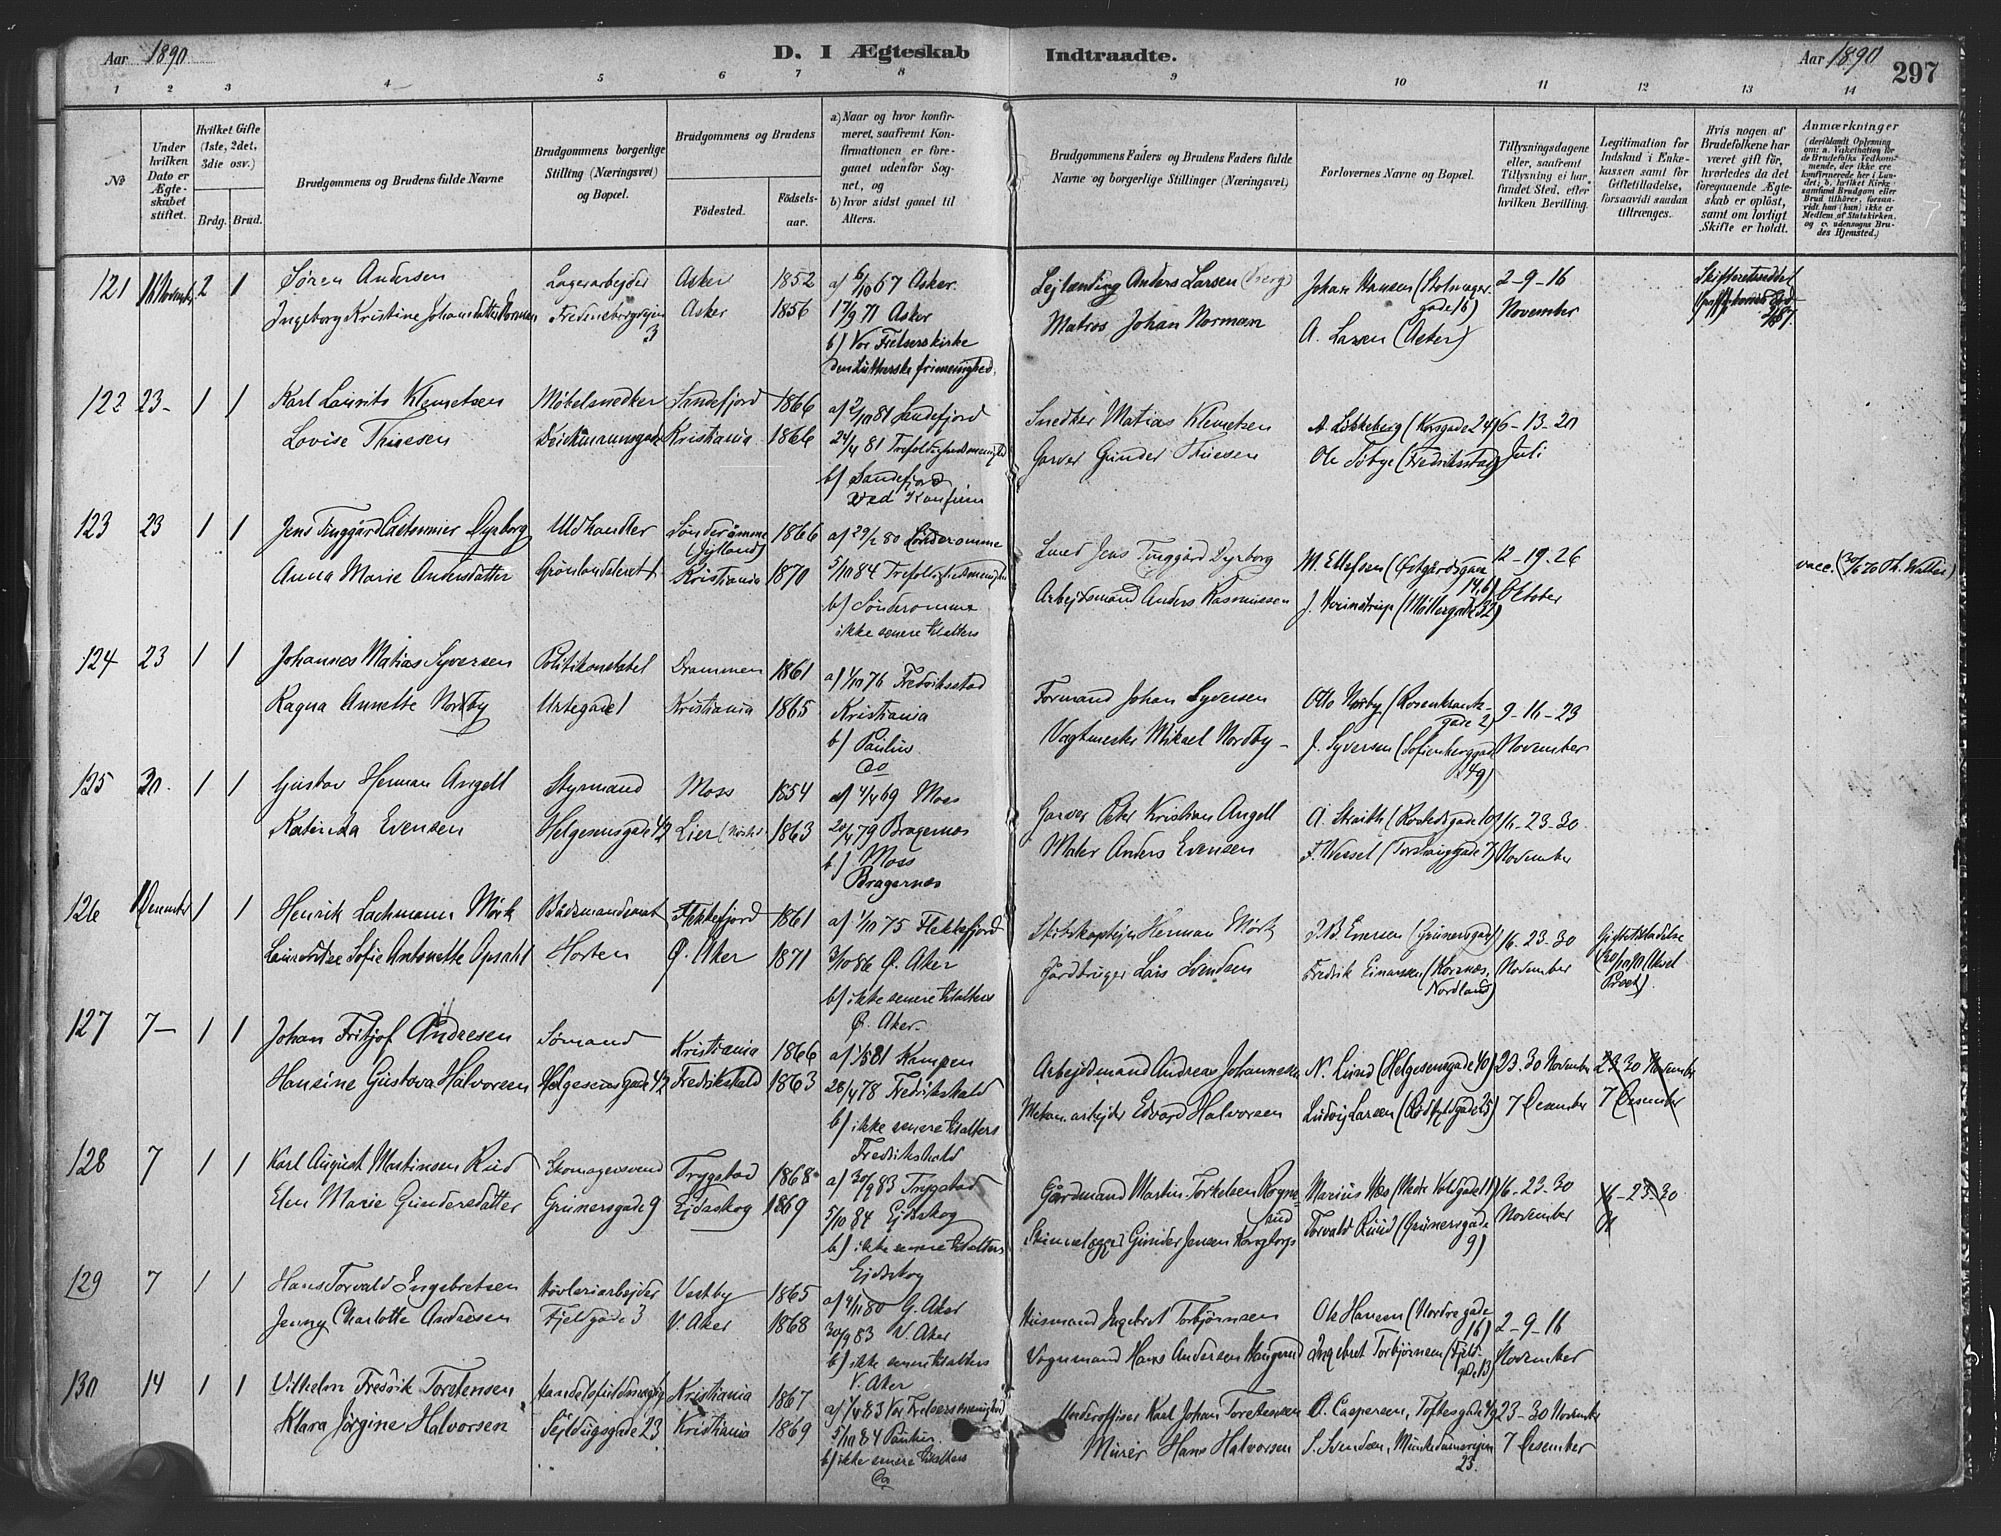 Aar 1890
D. I Ægteskab Indtraadte.
Aar 1890
297
1 2 3 4 5 6 7 8 9 10 11 12 13 14
No
Under hvilken Dato er Ægteskabet stiftet.
Hvilket Gifte (1ste, 2det, 3die osv.)
Brdg. Brud.
Brudgommens og Brudens fulde Navne
Brudgommens borgerlige Stilling (Næringsvei) og Bopæl.
Brudgommens og Brudens
Fødested.
Fødselsaar.
a) Naar og hvor konfirmeret, saafremt Konfirmationen er foregaaet udenfor Sognet, og
b) hvor sidst gaaet til Alters.
Brudgommens Faders og Brudens Faders fulde Navne og borgerlige Stillinger (Næringsvei)
Forlovernes Navne og Bopæl.
Tillysningsdagene eller, saafremt Tillysning ei har fundet Sted, efter hvilken Bevilling.
Legitimation for Indskud i Enkekassen samt for Giftetilladelse, forsaavidt saadan tiltrænges.
Hvis nogen af Brudefolkene har været gift før, hvorledes da det foregaaende Ægteskab er opløst, samt om lovligt Skifte er holdt.
Anmærkninger
(deriblandt Oplysning om: a. Vakcination for de Brudefolks Vedkommende, der ikke ere konfirmerede her i Landet; b. hvilket Kirkesamfund Brudgom eller Brud tilhører, forsaavidt han (hun) ikke er Medlem af Statskirken, og c. udensogns Brudes Hjemsted.)
121 16 November 2 1 Søren Andersen Lagerarbejder Asker 1852 a) 6/10 67 Asker. Lejlænding Anders Larsen (Berg) Johan Hansen (Holmegergade 16) 2-9-16
Ingeborg Kristine Johansdatter Norman Fredensborgvejen 3 Asker 1856 17/9 71 Asker Matros Johan Norman A. Larsen (Asker) November
b) Vor Frelsers kirke
den Lutherske frimenighed.
122 23- 1 1 Karl Laurits Klemetsen Møbelsnedker Sandefjord 1866 a) 2/10 81 Sandefjord Snedker Matias Klemetsen A. Likkeberg (Korsgade 24) 6-13-20
Lovise Thiesen Deichmannsgade Kristiania 1866 24/4 81 Trefoldighedsmenighed Garver Gunder Thiesen Ole Tobye (Fredriksstad) Juli
b) Sandefjord
ved Konfirm
123 23 1 1 Jens Tinggård Castonnier Dyrborg Uldhandler Sønderomme (Jylland) 1866 a) 29/2 80 Sønderomme Smed Jens Tinggård Dyrborg M. Ellefsen (Østgårdsgade 14,6) 12-19-26
Anna Marie Andersdatter Grønlandsleret Kristiania 1870 5/10 84 Trefoldighedsmenighed Arbejdsmand Anders Rasmussen J. Heimstrup (Møllergade 32) Oktober
b) Sønderomme
ikke senere til alters
124 23 1 1 Johannes Matias Syversen Politikonstabel Drammen 1861 a) 1/10 76 Fredriksstad Formand Johan Syversen Otto Norby (Rosenkrantzgade 2) 9-16-23
Ragna Annette Nordby Urtegade 1 Kristiania 1865 Kristiania Vagtmester Mikael Nordby - J. Syversen (Sofienberggade 49) November
b) Paulus
do
125 30. 1 1 Gustav Herman Angell Styrmand Moss 1854 a) 4/4 69 Moss Garver Peter Kristian Angell A. Straith (Rostedsgade 10) 16-23-30
Katinka Evensen Helgesensgade 42 Lier 1863 20/4 79 Bragernæs Maler Anders Evensen F. Wessel (Torshauggade 7) November
b) Moss
Bragernæs
126 1 Desember 1 1 Henrik Lachmann Mørk Bådsmandsmat Flekkefjord 1861 a) 1/10 75 Flekkefjord Skibskaptejn Herman Mørk J. B. Eversen (Grünersgade) 16-23-30 Giftetilladelse
Sofie Antonette Opsahl Horten Ø. Aker 1871 3/10 86 Ø. Aker Gårdbruger Lars Svendsen Fredrik Einarsen (Nordland) November
b) ikke senere til alters
Ø. Aker.
127 7- 1 1 Johan Fritjof Andresen Sømand Kristiania 1866 a) 1/5 81 Kampen Arbejdsmand Andreas Johannesen N. Lund (Helgesensgade 40) 23.30 November 23.30 November
Hansine Gustava Halvorsen Helgesensgade 42 Fredrikshald 1863 28/4 78 Fredrikshald Mekan. arbejder Edvard Halvorsen Ludvig Larsen (Rødbyldgade 25) 7 Desember 7 Desember
b) ikke senere til alters
Fredrikshald
128 7 1 1 Karl August Martinsen Rud Skomagersvend Trygstad 1868 a) 30/9 83 Trygstad Gårdmand Martin Torkelsen Rognerud Marius Næs (Nedre Voldgade 11) 16-23-30 16-23-30
Elen Marie Gundersdatter Grünersgade 9 Ejdskog 1869 5/10 84 Ejdskog Gunder Jensen Torvald Ruud (Grünersgade 9) November
b) ikke senere til alters
Ejdskog
129 7 1 1 Hans Torvald Ingebretsen Høvleriarbejder Vestby 1865 a) 4/11 80 G. Aker Husmand Ingebret Torbjørnsen Ole Hansen (Nordregade 16) 2-9-16
Jenny Charlotte Andresen Fjeldgade 3 V. Aker 1868 30/9 83 V. Aker Vognmand Hans Andersen Haugerud Ingebret Torbjørnsen (Fjeldgade 13) November
b) ikke senere til alters
V. Aker
130 14 1 1 Vilhelm Fredrik Torstensen Handelsfuldmægtig Kristiania 1867 a) 1/4 83 Vor Frelsers menighed Underoffiser Karl Johan Torstensen O. Caspersen, Toftesgade 49 23-30 November
Klara Jørgine Halvorsen Sejldugsgade 23 Kristiania 1869 5/10 84 Paulus Murer Hans Halvorsen S. Svendsen, Munkedamsvejen 23. 7 Desember
b) ikke senere til alters
do